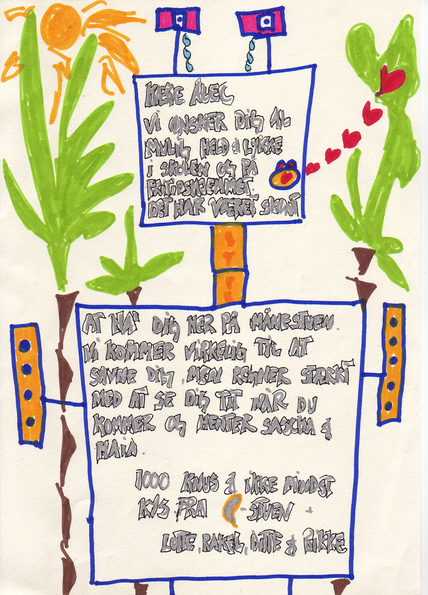 KÆRE ALEC
VI ØNSKER DIG AL
MULIG HELD & LYKKE
I SKOLEN OG PÅ
FRITIDSHJEMMET.
DET HAR VÆRET SKØNT
AT HA' DIG HER PÅ MÅNESTUEN.
VI KOMMER VIRKELIG TIL AT
SAVNE DIG, MEN REGNER STÆRKT
MED AT SE DIG TIT NÅR DU
KOMMER OG HENTER SASCHA &
MAIA.
1000 KNUS & IKKE MINDST
KYS FRA -STUEN
LOTTE, RAKEL, DITTE & RIKKE